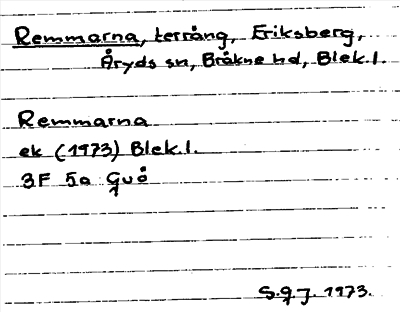 Remmarna, terräng, Eriksberg,
Åryds sn, Bräkne hd, Blek.l.
Remmarna
ek (1973) Blek.l.
3F 5a Guö
S.G.J. 1973.